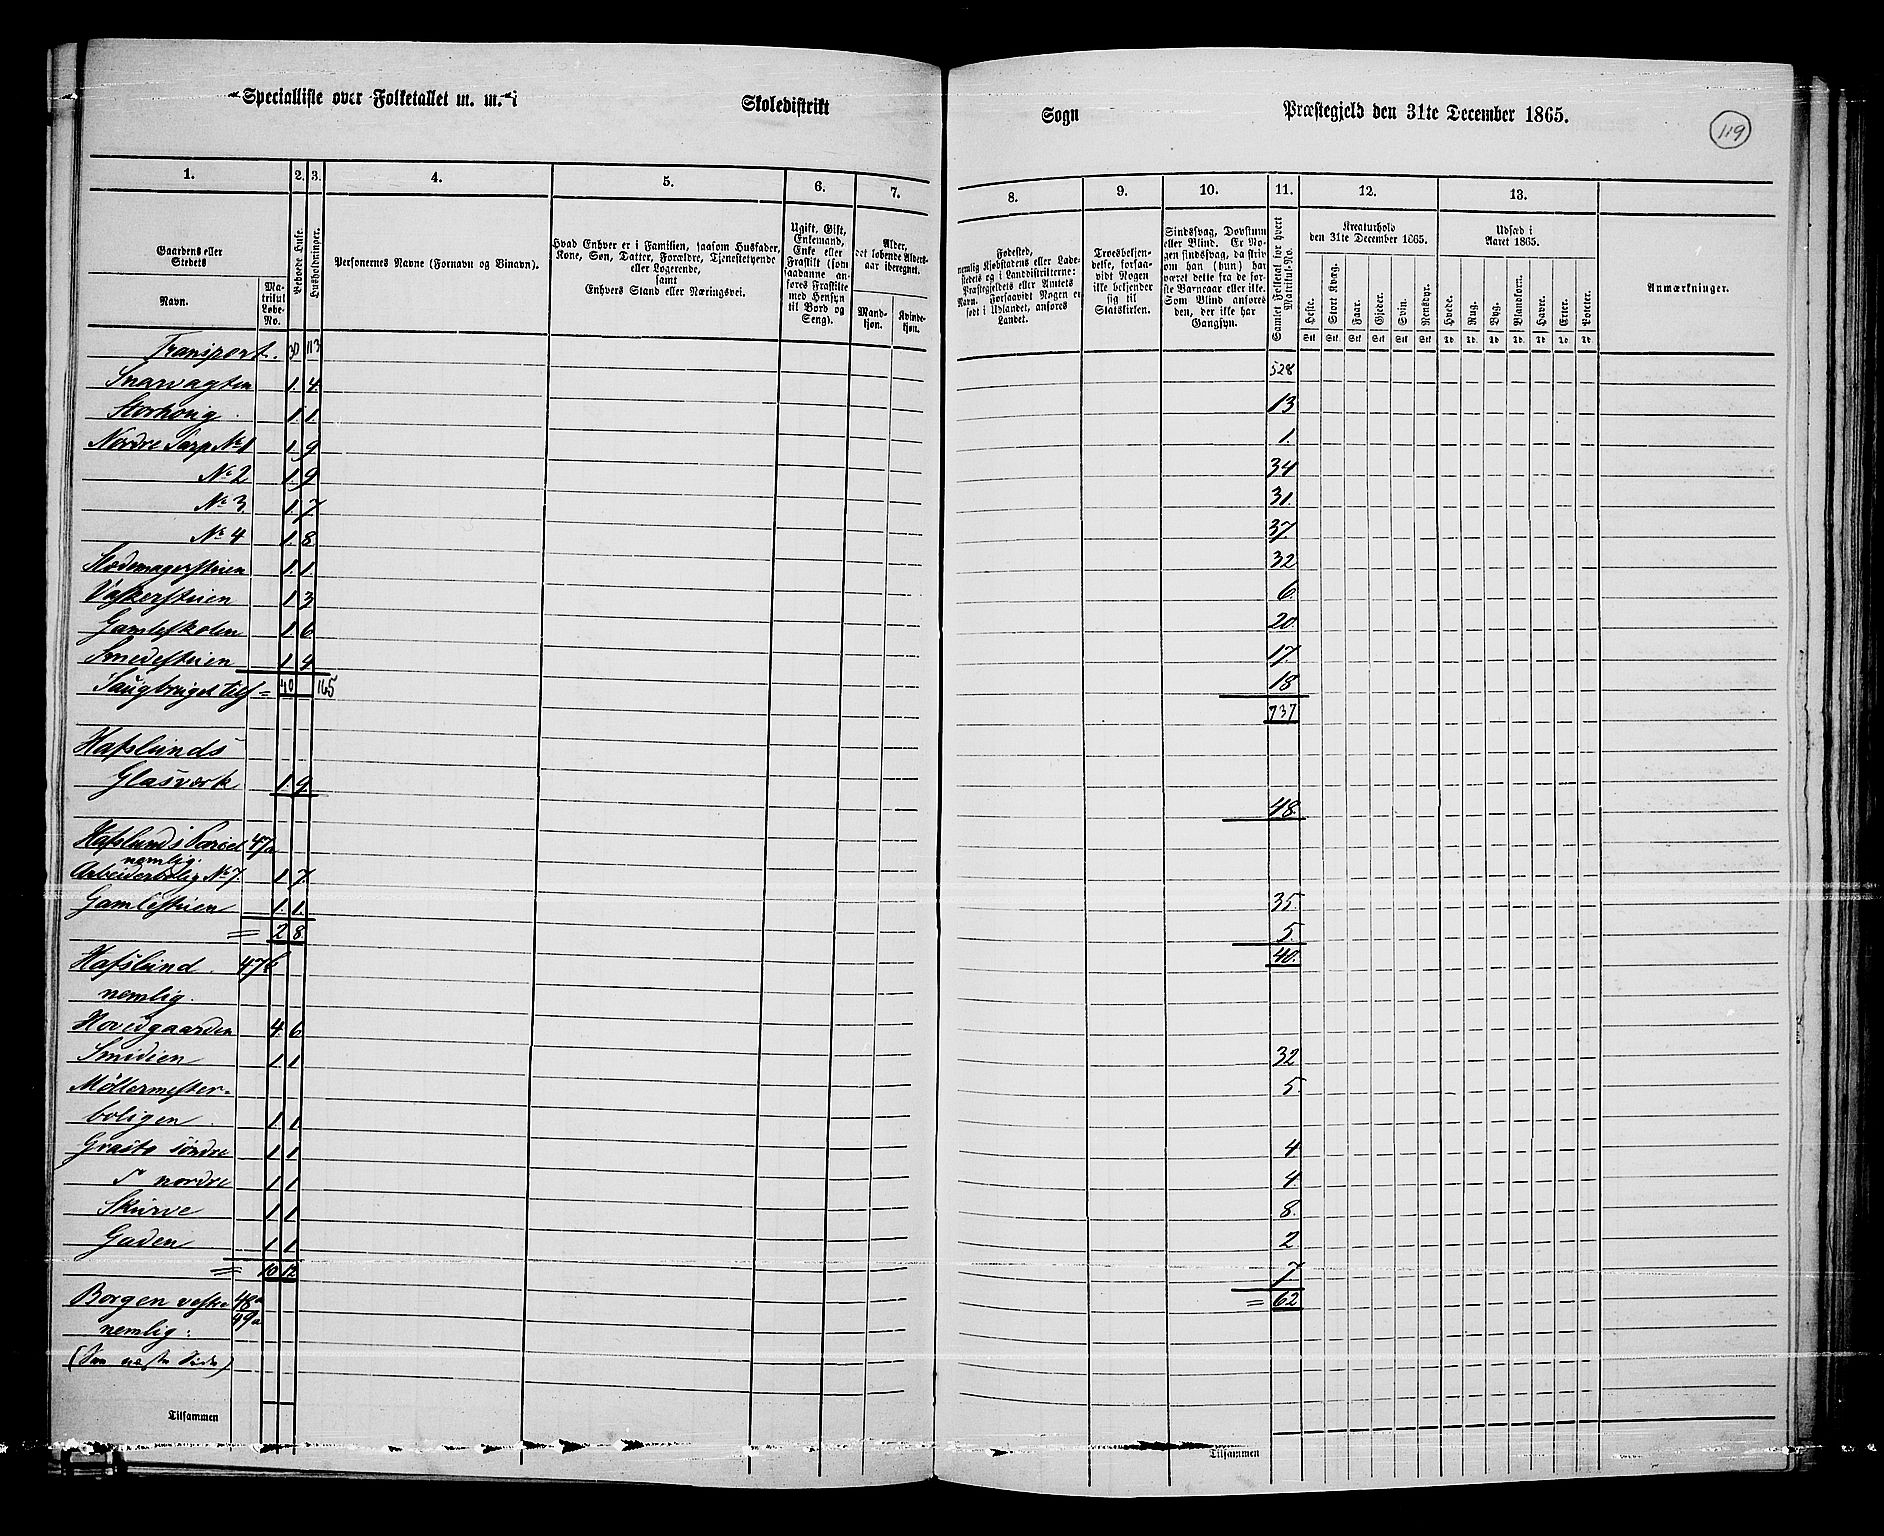 Specialliste over Folketallet m. m. i Skoledistrikt Sogn Præstegjeld den 31te December 1865. 119
1. 2. 3. 4. 5. 6. 7. 8. 9. 10. 11. 12. 13.
Gaardens eller Stedets
Navn.
Matrikul Løbe-No.
Beboede Huse.
Husholdninger.
Personernes Navne (Fornavn og Vinavn).
Hvad Enhver er i Familien, saasom Husfader,
Kone, Søn, Datter, Forældre, Tjenestetyende
eller Logerende,
samt
Enhvers Stand eller Næringsvei.
Ugift, Gift,
Enkemand,
Enke eller
Fraskilt (som
saadanne an-
føres Fraskilte
med Hensyn
til Bord og
Seng).
Alder,
det løbende Alders-
aar iberegnet.
Mand-
kjøn.
Kvinde-
kjøn.
Fødested,
nemlig Kjøbstadens eller Lade-
stedets og i Landdistrikterne:
Præstegjeldets eller Amtets
Navn. Forsaavidt Nogen er
født i Udlandet, anføres
Landet.
Troesbekjen-
delse, forsaa-
vidt Nogen
ikke bekjender
sig til
Statskirken.
Sindssvag, Døvstum
eller Blind. Er No-
gen sindssvag, da skriv
om han (hun) har
været dette fra de før-
ste Barneaar eller ikke.
Som Blind anføres
den, der ikke har
Gangsyn.
Samlet Folketal for hvert Matrikul-No.
Kreaturhold
den 31te December 1865.
Heste. Stort Kvæg. Faar. Gjeder. Svin. Rensdyr.
Stk. Stk. Stk. Stk. Stk. Stk.
Udsæd i
Aaret 1865.
Hvede. Rug. Byg. Blandkorn. Havre. Erter. Poteter.
Td. Td. Td. Td. Td. Td. Td.
Anmærkninger.
Transport. 30 113 528
Snarvagten 1. 4 13
Storhoug 1. 1. 1.
Nordre Sarp No 1 1. 9 34
No 2 1. 9 31.
No 3. 1. 7 37
No 4 1. 8. 32
Stodemagerstuen 1. 1. 6.
Vaskerstuen 1 3 20.
Gamleskolen 1. 6 17.
Smedestuen 1. 4 18
Saugbruget tils = 40 165 737
Hafslunds
Glasværk 1. 9. 48.
Hafslunds Parcel 47a
nemlig.
Arbeiderbolig No 7. 1. 7. 35.
Gamlestuen 1. 1. 5.
= 2 8. 40.
Hafslund. 47b
nemlig.
Hovedgaarden 4. 6 32
Smidien 1. 1 5.
Møllermester-
boligen 1. 1. 4
Grasto søndre 1 1 4.
" nordre 1 1 8.
Skurve 1 1 2
Gaden 1 1 7
= 10 12 = 62
Borgen vestre 48a
nemlig: 49a
(See næste Side)
Tilsammen Tilsammen